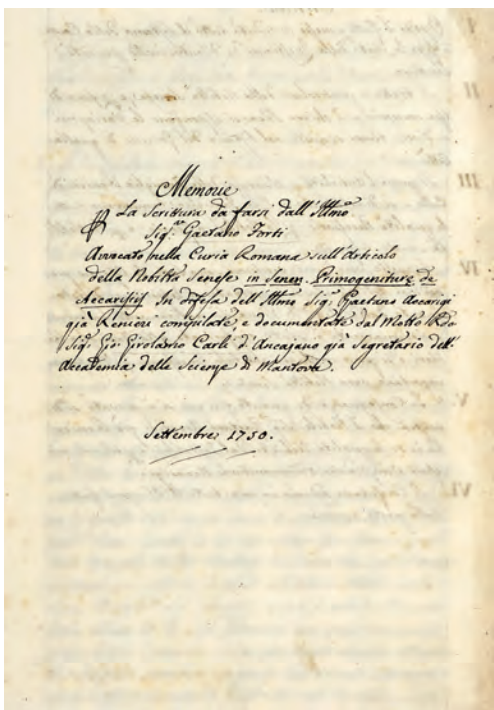 Memorie
La Scrittura da farsi dall'Illmo
Sig. Gaetano Forti
Avvocato nella Curia Romana sull'Articolo
della Nobiltà Senese in Senen. Primogeniture de
Accarisiis In difesa dell'Illmo Sig. Gaetano Accarigi
già Renieri compilate, e documentate dal Molto Rdo
Sig. Gio: Girolamo Carli d'Ancajano già Segretario dell'
Accademia delle Scienze di Mantova.
Settembre 1750.
II
III
IV
V.
VI.